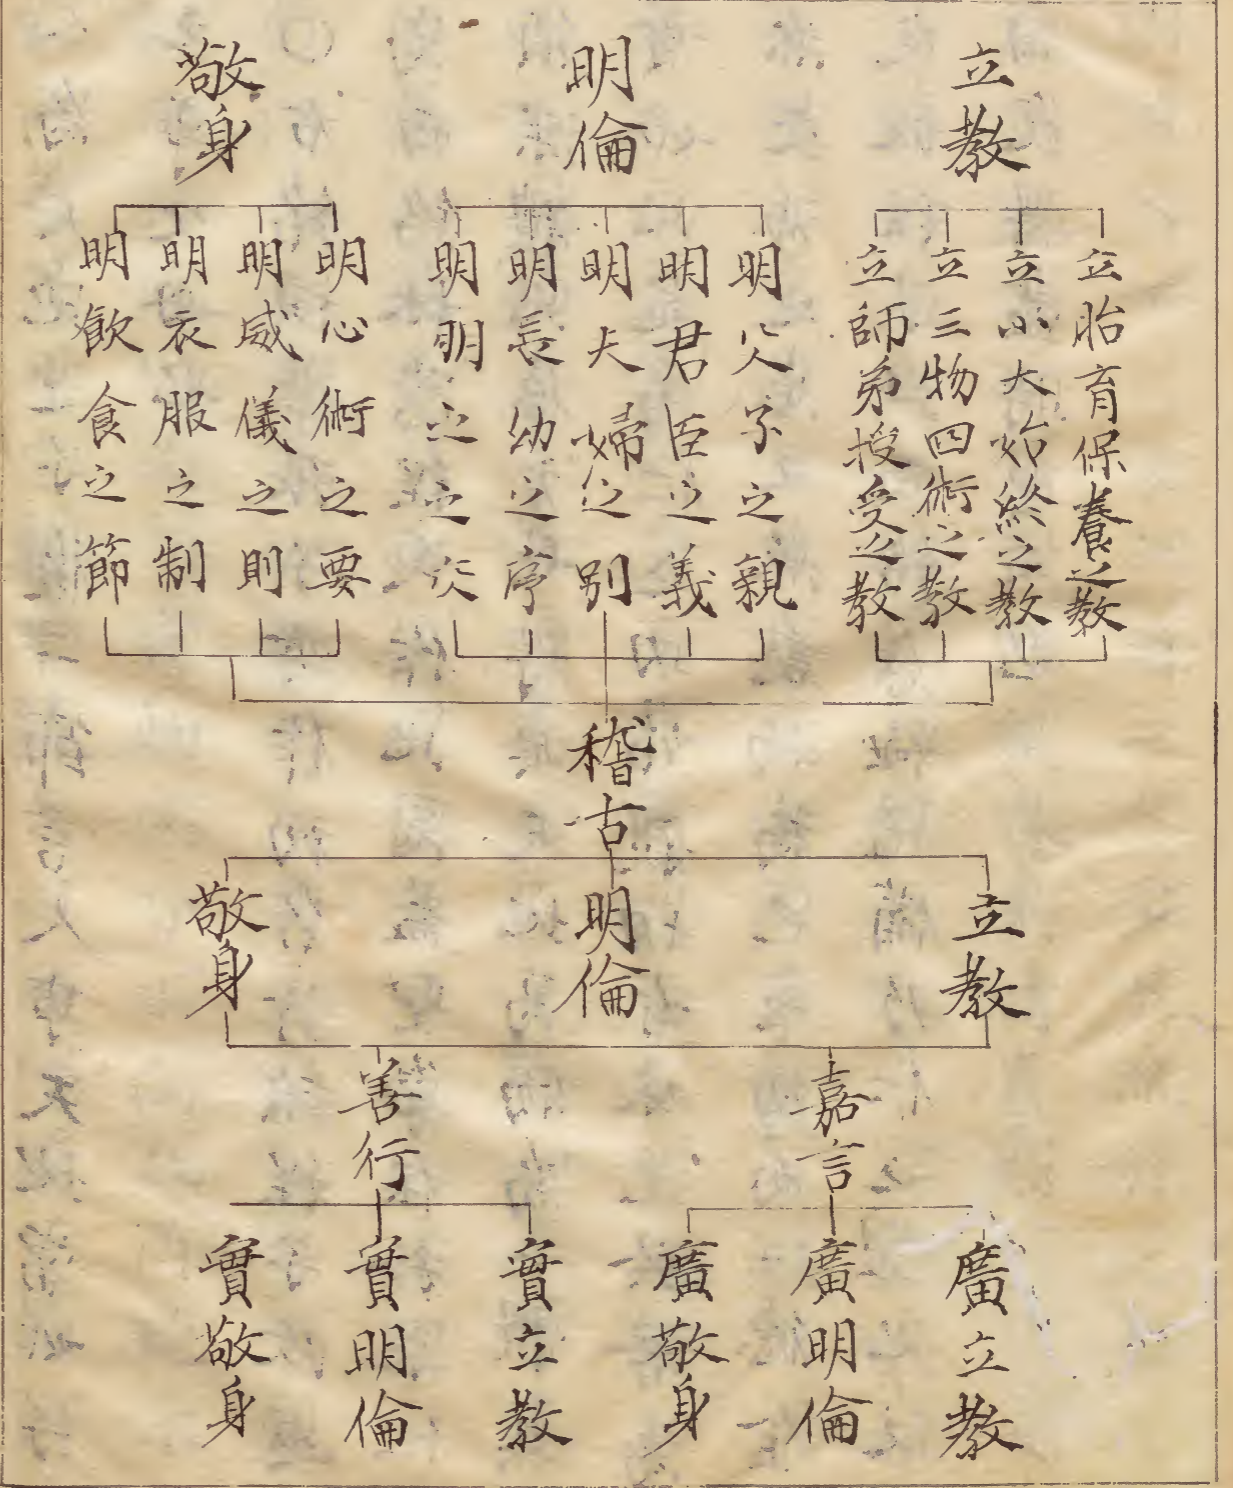 立教
明倫
敬身
立胎育保養之教
立小大始終之教
立三物四術之教
立師弟授受之教
明父子之親
明君臣之義
明夫婦之別
明長幼之序
明朋友之交
明心術之要
明威儀之則
明衣服之制
明飲食之節
稽古
立教
明倫
敬身
嘉言
善行
廣立教
廣明倫
廣敬身
實立教
實明倫
實敬身